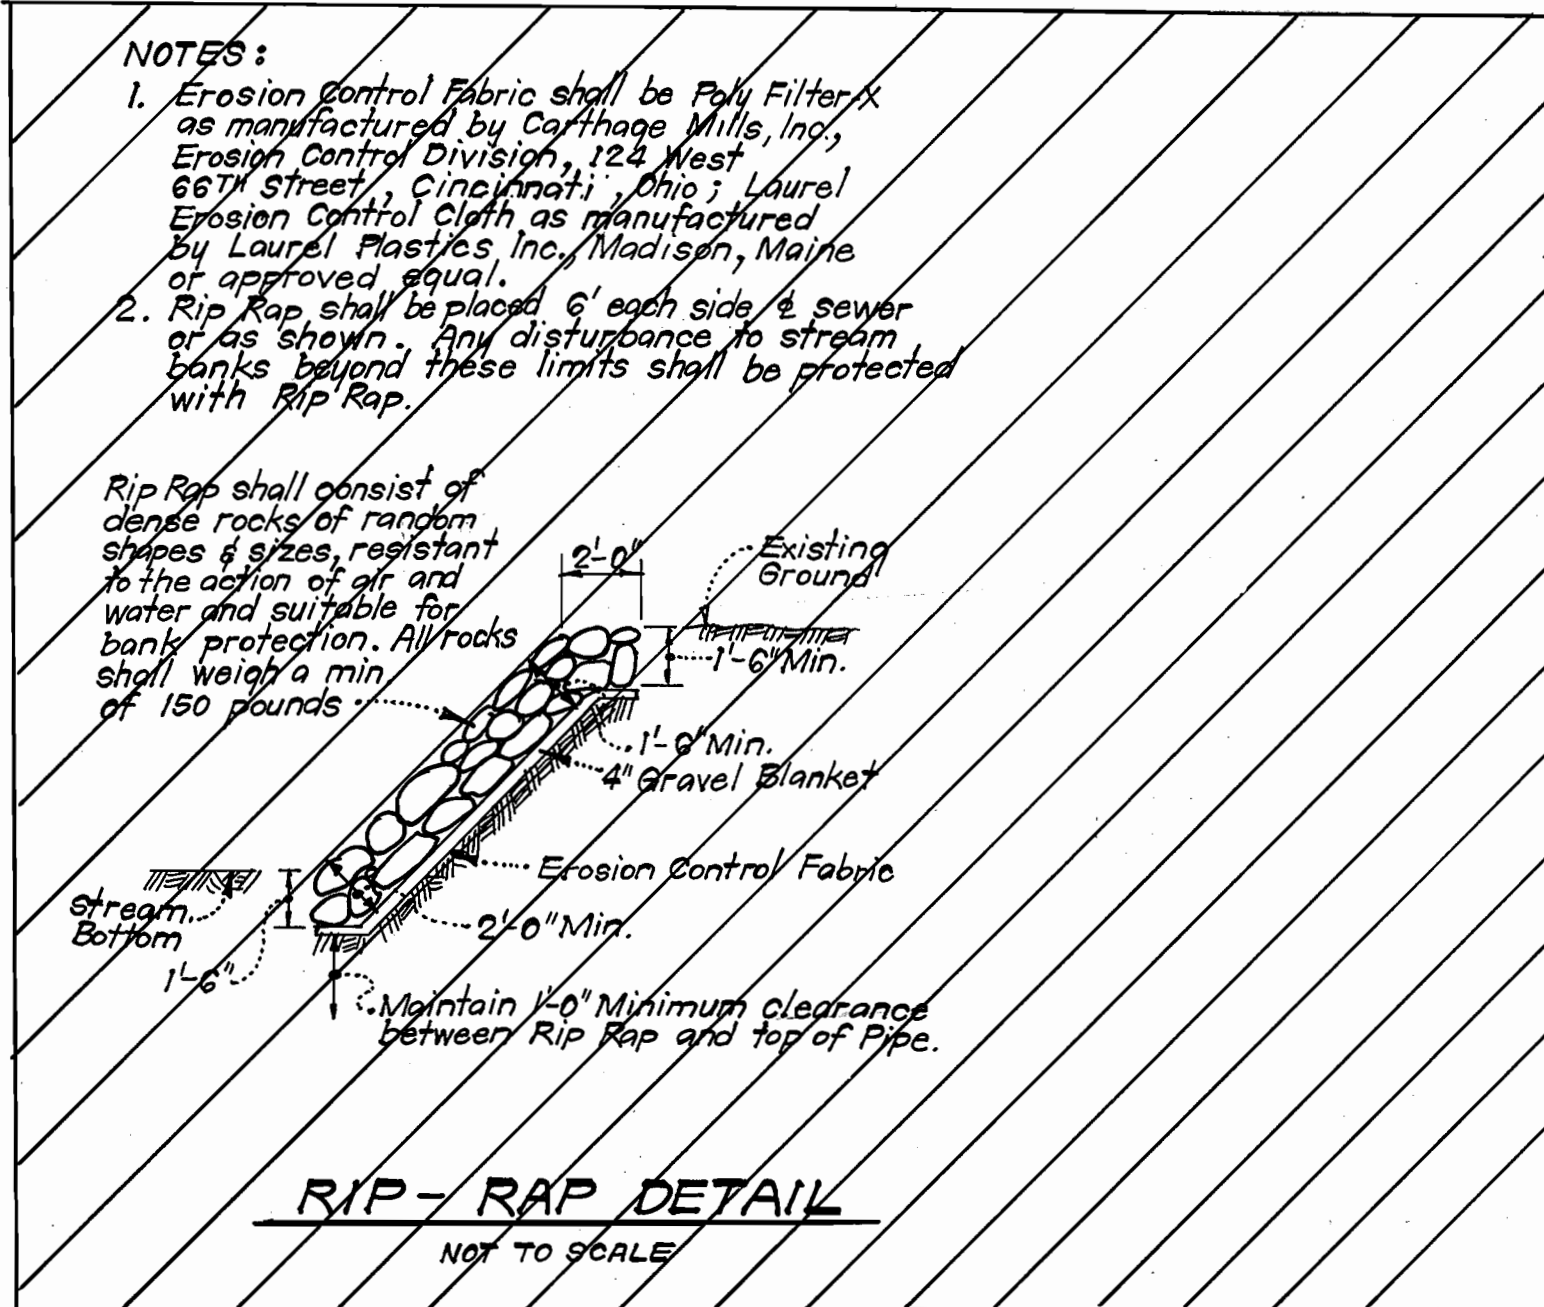 NOTES:
1. Erosion Control Fabric shall be Poly Filter-X
as manufactured by Carthage Mills, Inc.,
Erosion Control Division, 124 West
66TH Street, Cincinnati, Ohio; Laurel
Erosion Control Cloth as manufactured
by Laurel Plastics Inc., Madison, Maine
or approved equal.
2. Rip Rap shall be placed 6' each side ℄ sewer
or as shown. Any disturbance to stream
banks beyond these limits shall be protected
with Rip Rap.
Rip Rap shall consist of
dense rocks of random
shapes & sizes, resistant
to the action of air and
water and suitable for
bank protection. All rocks
shall weigh a min.
of 150 pounds
2'-0"
Existing
Ground
1'-6" Min.
1'-6" Min.
4" Gravel Blanket
Erosion Control Fabric
2'-0" Min.
Stream
Bottom
1'-6"
Maintain 1'-0" Minimum clearance
between Rip Rap and top of Pipe.
RIP-RAP DETAIL
NOT TO SCALE